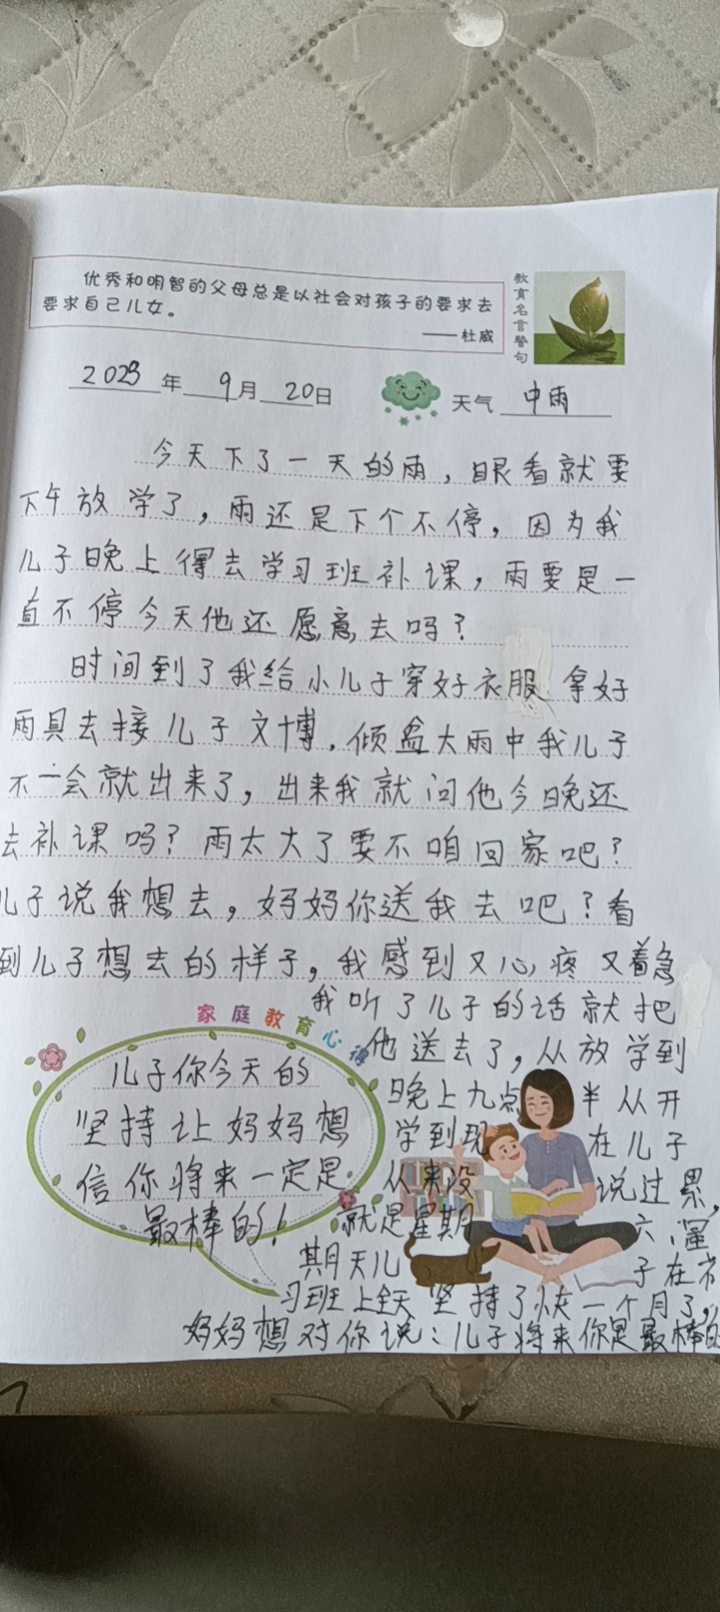 优秀和明智的父母总是以社会对孩子的要求去
要求自己儿女。
——杜威
教育名言警句
2023年 9月 20日
天气 中雨
今天下了一天的雨，眼看就要
下午放学了，雨还是下个不停，因为我
儿子晚上得去学习班补课，雨要是一
直不停今天他还愿意去吗？
时间到了我给小儿子穿好衣服 拿好
雨具去接儿子文博，倾盆大雨中我儿子
不一会就出来了，出来我就问他今晚还
去补课吗？雨太大了要不咱回家吧？
儿子说我想去，妈妈你送我去吧？看
到儿子想去的样子，我感到又心疼又着急
我听了儿子的话就把
他送去了，从放学到
晚上九点半从开
学到现在儿子
从来没说过累，
就是星期六、星
期天儿子在
习班上全天坚持了快一个月了，
妈妈想对你说：儿子将来你是最棒的
家庭教育心得
儿子你今天的
坚持让妈妈想
信你将来一定是
最棒的！